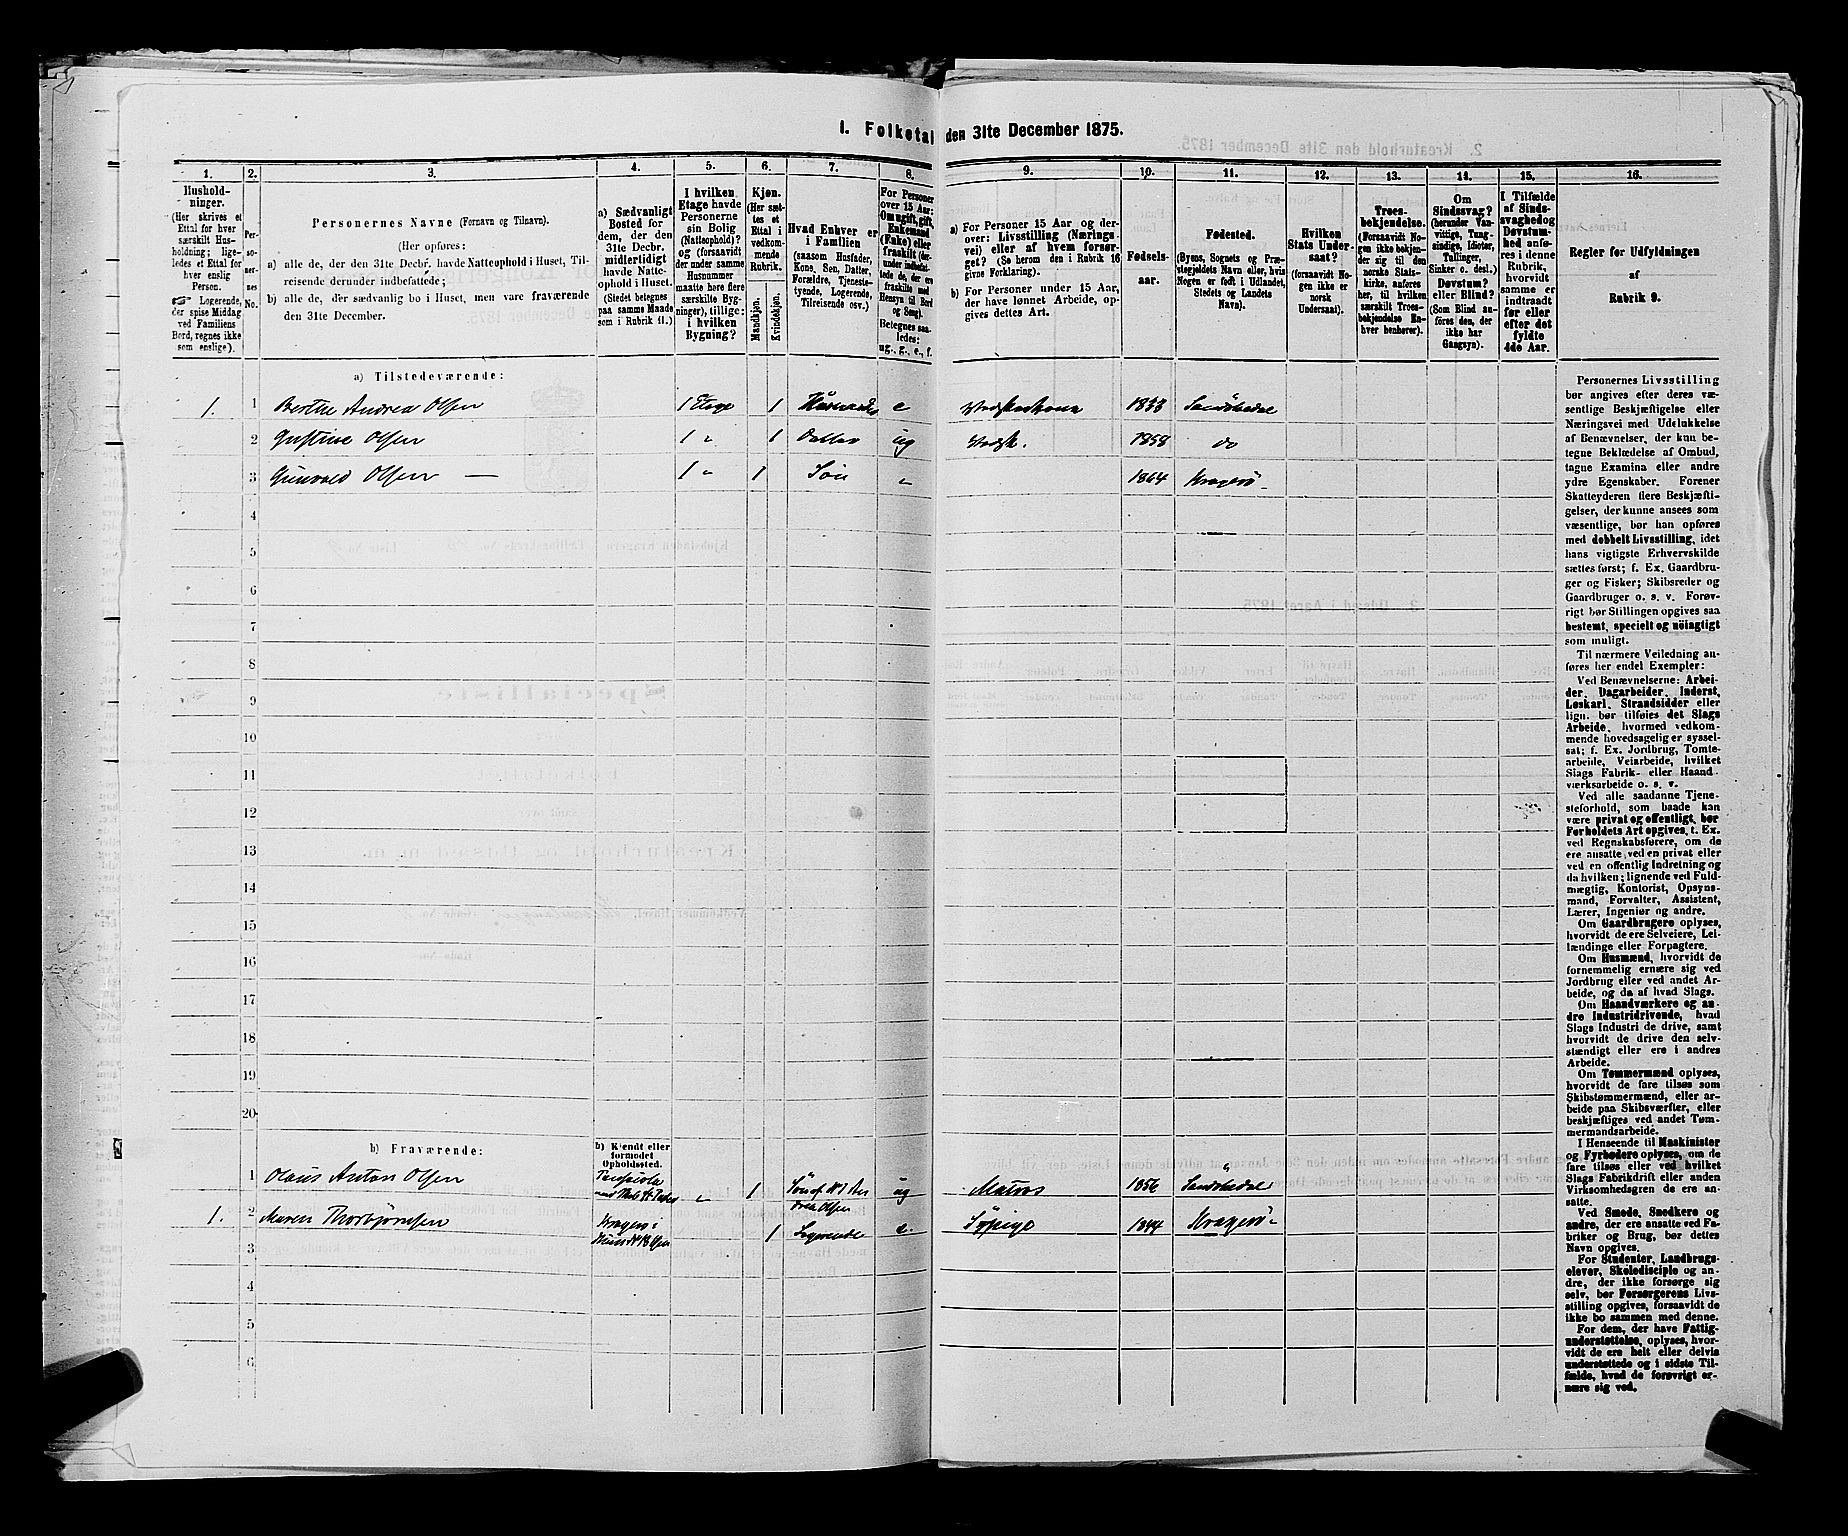 1. Folketal den 31te December 1875.
1.
Hushold-
ninger.
(Her skrives et
Ettal for hver
særskilt Hus-
holdning; lige-
ledes et Ettal for
hver enslig
Person.
Logerende,
der spise Middag
ved Familiens
Bord, regnes ikke
som enslige).
2.
Per-
so-
ner-
nes
No.
3.
Personernes Navne (Fornavn og Tilnavn).
(Her opføres:
a) alle de, der den 31te Decbr. havde Natteophold i Huset, Til-
reisende derunder indbefattede;
b) alle de, der sædvanlig bo i Huset, men vare fraværende
den 31te December.
4.
a) Sædvanligt
Bosted for
dem, der den
31te Decbr.
midlertidigt
havde Natte-
ophold i Huset.
(Stedet betegnes
paa samme Maade
som i Rubrik 11.)
5.
I hvilken
Etage havde
Personerne
sin Bolig
(Natteophold)?
og (forsaavidt
der under samme
Husnummer
maatte høre flere
særskilte Byg-
ninger), tillige:
i hvilken
Bygning?
6.
Kjøn.
(Her sæt-
tes et
Ettal i
vedkom-
mende
Rubrik.
Mandkjøn.
Kvindekjøn.
7.
Hvad Enhver er
i Familien
(saasom Husfader,
Kone, Søn, Datter,
Forældre, Tjeneste-
tyende, Logerende,
Tilreisende osv.)
8.
For Personer
over 15 Aar:
Om ugift, gift,
Enkemand
(Enke) eller
fraskilt
Betegnes saa-
ledes:
ug., g., e., f.
9.
a) For Personer 15 Aar og der-
over: Livsstilling (Nærings-
vei) eller af hvem forsør-
get? (Se herom den i Rubrik 16
givne Forklaring).
b) For Personer under 15 Aar,
der have lønnet Arbeide, op-
gives dettes Art.
10.
Fødsels-
aar.
11.
Fødested.
(Byens, Sognets og Præ-
stegjeldets Navn eller, hvis
Nogen er født i Udlandet,
Stedets og Landets
Navn).
12.
Hvilken
Stats Under-
saat?
(forsaavidt No-
gen ikke er
norsk
Undersaat).
13.
Troes-
bekjendelse.
(Forsaavidt No-
gen ikke bekjen-
der sig til den
norske Stats-
kirke, anføres
her, til hvilken
særskilt Troes-
bekjendelse En-
hver henhører).
14.
Om
Sindssvag?
(herunder Van-
vittige, Tung-
sindige, Idioter,
Tullinger,
Sinker o. desl.)
Døvstum?
eller Blind?
(Som Blind an-
føres den, der
ikke har
Gangsyn).
15.
I Tilfælde
af Sinds-
svaghed og
Døvstum-
hed anfø-
res i denne
Rubrik,
hvorvidt
samme er
indtraadt
før eller
efter det
fyldte
4de Aar.
16.
Regler for Udfyldningen
af
Rubrik 9.
a) Tilstedeværende:
1. 1 Berthe Andrea Olsen 1 Etage 1 e 1833 Sandøkedal
2 Gustine Olsen 1 " 1 Datter ug 1858 do
3 Gunvald Olsen — 1 " 1 Søn " 1864 Kragerø
4
5
6
7
8
9
10
11
12
13
14
15
16
17
18
19
20
b) Fraværende:
b) Kjendt eller
formodet
Opholdssted.
1 Olaus Anton Olsen " 1 ug Matros 1856
1. 2 Maren Thorbjørnsen Kragerø i 1 Logerende e. Sypige 1844 Kragerø
3
4
5
6
Personernes Livsstilling
bør angives efter deres væ-
sentlige Beskjæftigelse eller
Næringsvei med Udelukkelse
af Benævnelser, der kun be-
tegne Beklædelse af Ombud,
tagne Examina eller andre
ydre Egenskaber. Forener
Skatteyderen flere Beskjæfti-
gelser, der kunne ansees som
væsentlige, bør han opføres
med dobbelt Livsstilling, idet
hans vigtigste Erhvervskilde
sættes først; f. Ex. Gaardbru-
ger og Fisker; Skibsreder og
Gaardbruger o. s. v. Forøv-
rigt bør Stillingen opgives saa
bestemt, specielt og nöiagtigt
som muligt.
Til nærmere Veiledning an-
føres her endel Exempler:
Ved Benævnelserne: Arbei-
der, Dagarbeider, Inderst,
Løskarl, Strandsidder eller
lign. bør tilføies det Slags
Arbeide, hvormed vedkom-
mende hovedsagelig er syssel-
sat; f. Ex. Jordbrug, Tomte-
arbeide, Veiarbeide, hvilket
Slags Fabrik- eller Haand-
værksarbeide o. s. v.
Ved alle saadanne Tjene-
steforhold, som baade kan
være privat og offentligt, bør
Forholdets Art opgives, t. Ex.
ved Regnskabsførere, om de
ere ansatte ved en privat eller
ved en offentlig Indretning og
da hvilken; lignende ved Fuld-
mægtig, Kontorist, Opsyns-
mand, Forvalter, Assistent,
Lærer, Ingeniør og andre.
Om Gaardbrugere oplyses,
hvorvidt de ere Selveiere, Lei-
lændinge eller Forpagtere.
Om Husmænd, hvorvidt de
fornemmelig ernære sig ved
Jordbrug eller ved andet Ar-
beide, og da af hvad Slags.
Om Haandværkere og an-
dre Industridrivende, hvad
Slags Industri de drive, samt
hvorvidt de drive den selv-
stændigt eller ere i andres
Arbeide.
Om Tømmermænd oplyses,
hvorvidt de fare tilsøs som
Skibstømmermænd, eller ar-
beide paa Skibsværfter, eller
beskjæftiges ved andet Tøm-
mermandsarbeide.
I Henseende til Maskinister
og Fyrbødere oplyses, om de
fare tilsøs eller ved hvilket
Slags Fabrikdrift eller anden
Virksomhedsgren de ere an-
satte.
Ved Smede, Snedkere og
andre, der ere ansatte ved Fa-
briker og Brug, bør dettes
Navn opgives.
For Studenter, Landbrugs-
elever, Skoledisciple og an-
dre, der ikke forsørge sig
selv, bør Forsørgerens Livs-
stilling opgives, forsaavidt de
ikke bo sammen med denne.
For dem, der have Fattig-
understøttelse, oplyses, hvor-
vidt de ere helt eller delvis
understøttede og i sidste Til-
fælde, hvad de forøvrigt er-
nære sig ved.